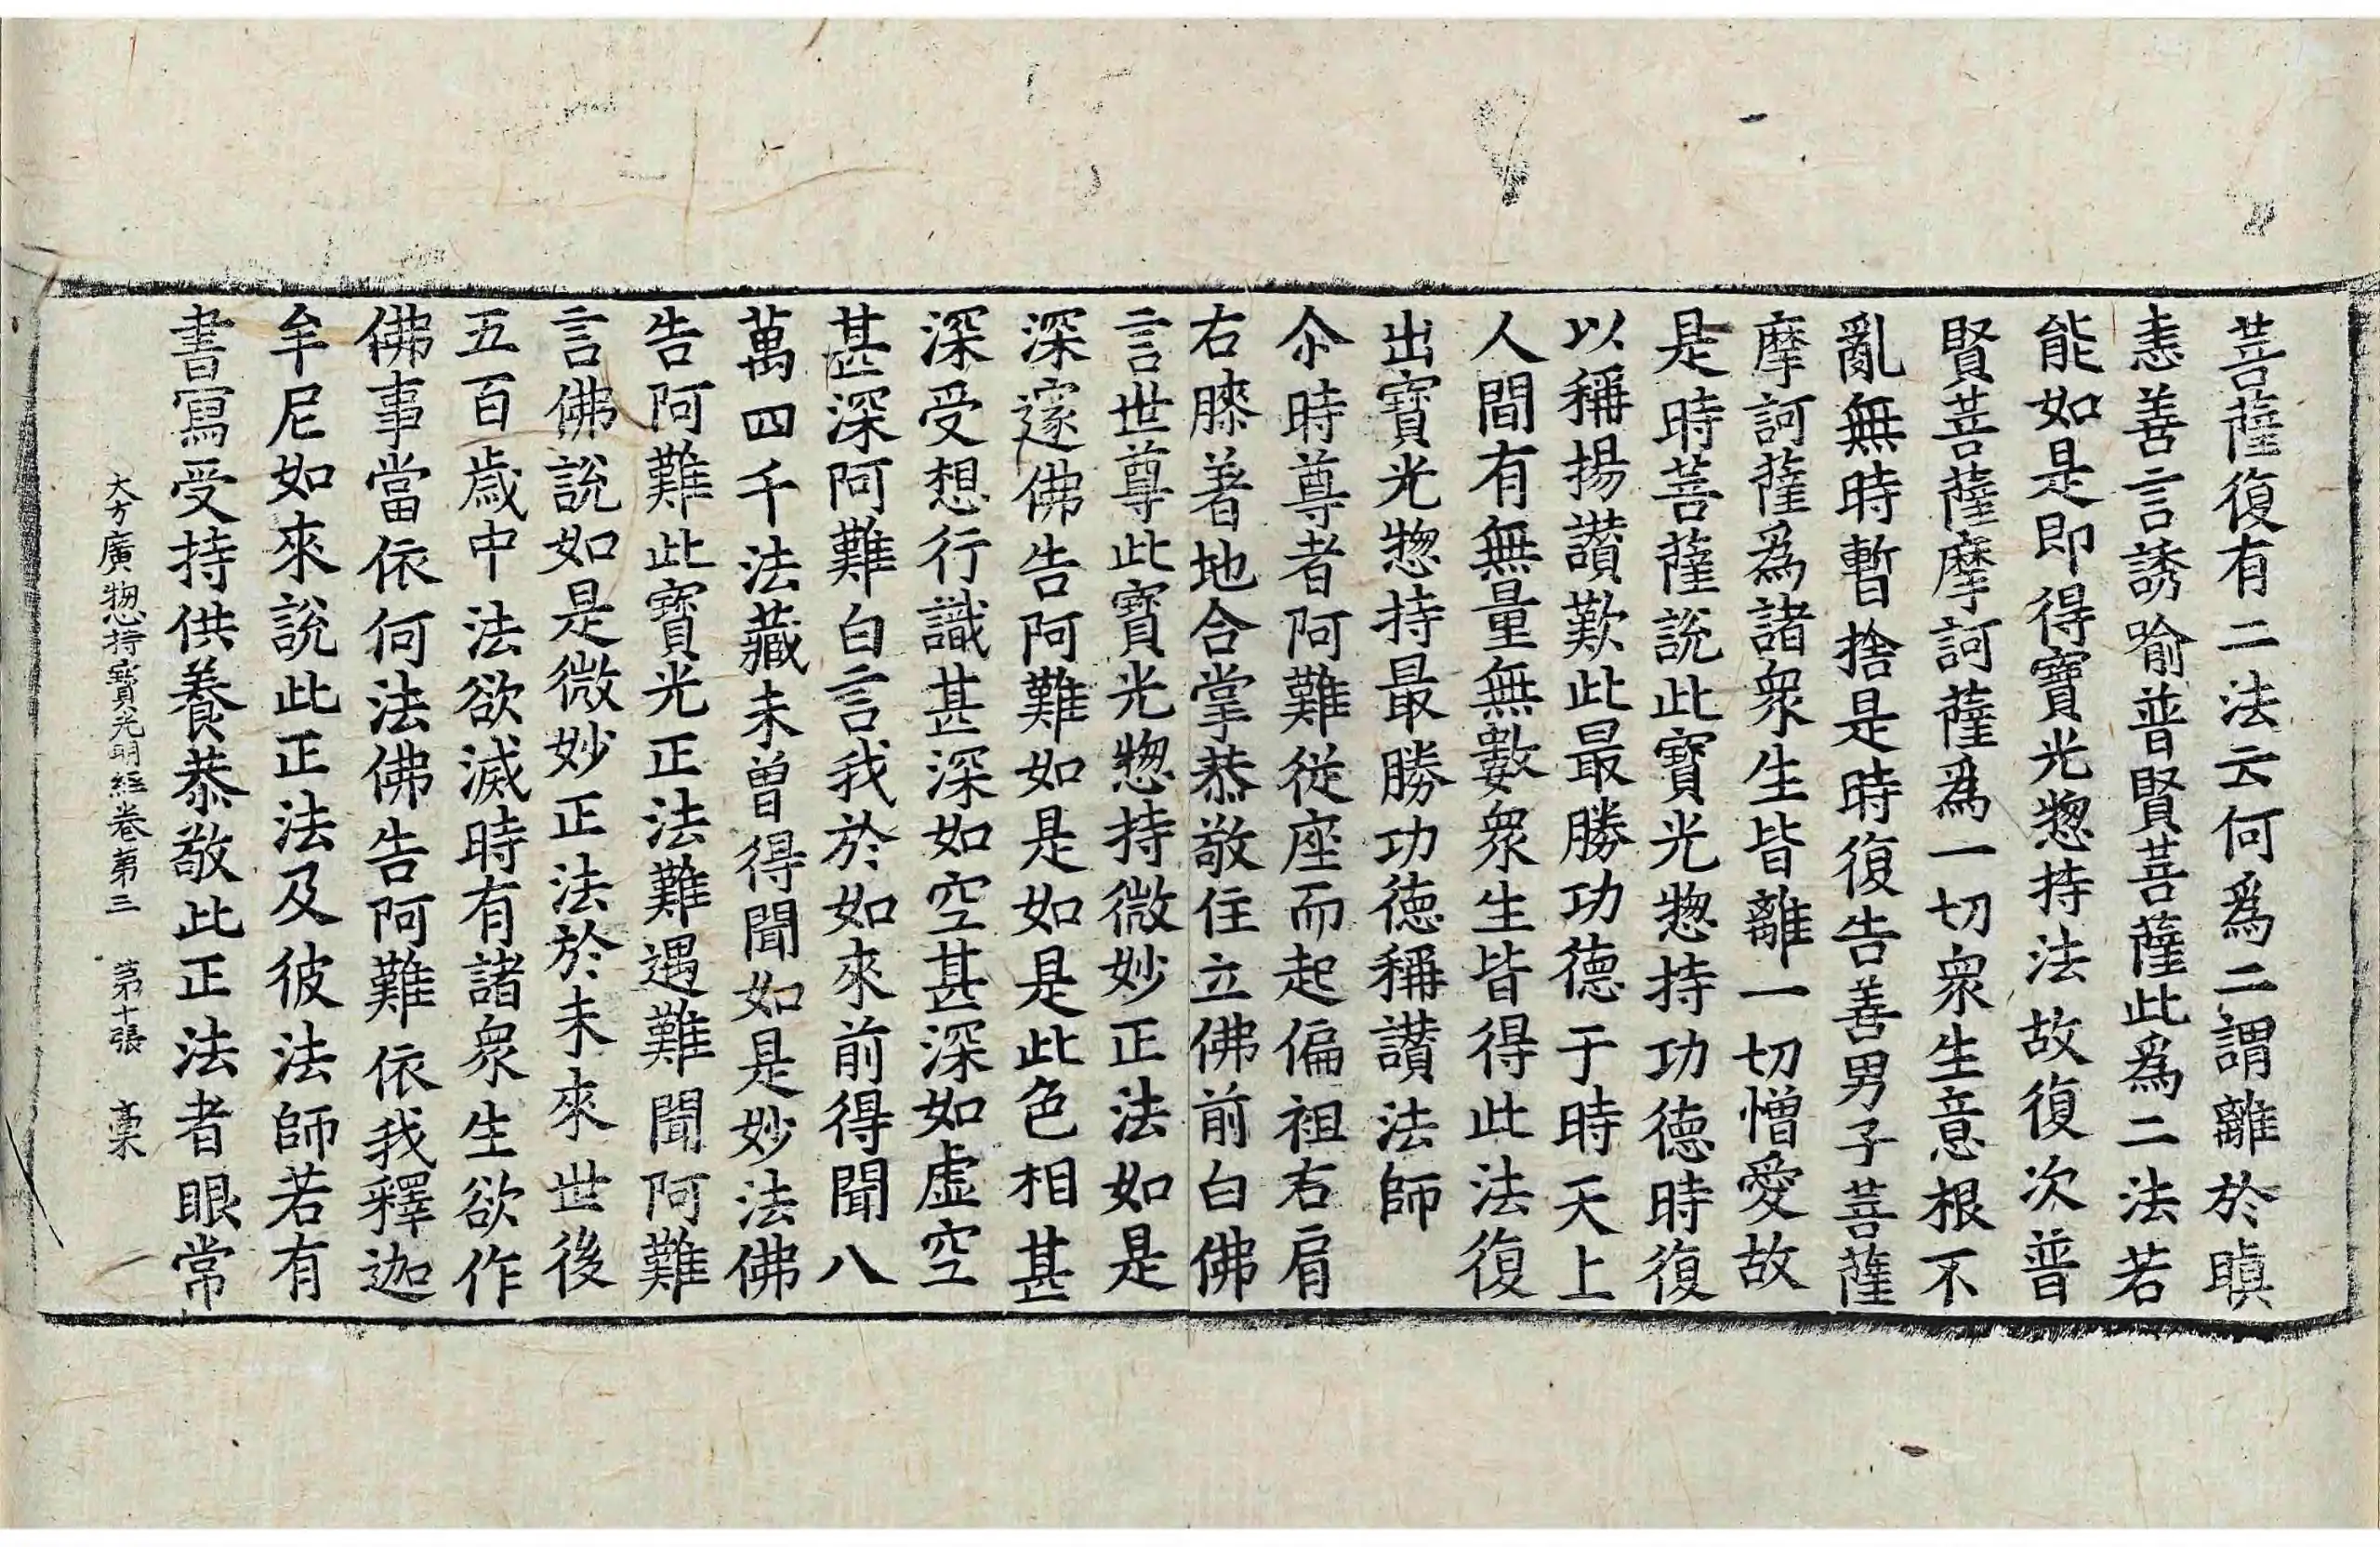 菩薩復有二法云何爲二謂離於瞋
恚善言誘喻普賢菩薩此爲二法若
能如是即得寶光惣持法故復次普
賢菩薩摩訶薩爲一切衆生意根不
亂無時暫捨是時復告善男子菩薩
摩訶薩爲諸衆生皆離一切憎愛故
是時菩薩說此寶光惣持功德時復
以稱揚讃歎此最勝功德于時天上
人間有無量無數衆生皆得此法復
出寶光惣持最勝功德稱讃法師
尒時尊者阿難從座而起偏袒右肩
右膝著地合掌恭敬住立佛前白佛
言世尊此寶光惣持微妙正法如是
深邃佛告阿難如是如是此色相甚
深受想行識甚深如空甚深如虛空
甚深阿難白言我於如來前得聞八
萬四千法藏未曾得聞如是妙法佛
告阿難此寶光正法難遇難聞阿難
言佛說如是微妙正法於未來世後
五百歲中法欲滅時有諸衆生欲作
佛事當依何法佛告阿難依我釋迦
牟尼如來說此正法及彼法師若有
書寫受持供養恭敬此正法者眼常
大方廣惣持寶光明經卷第三 第十張 槀